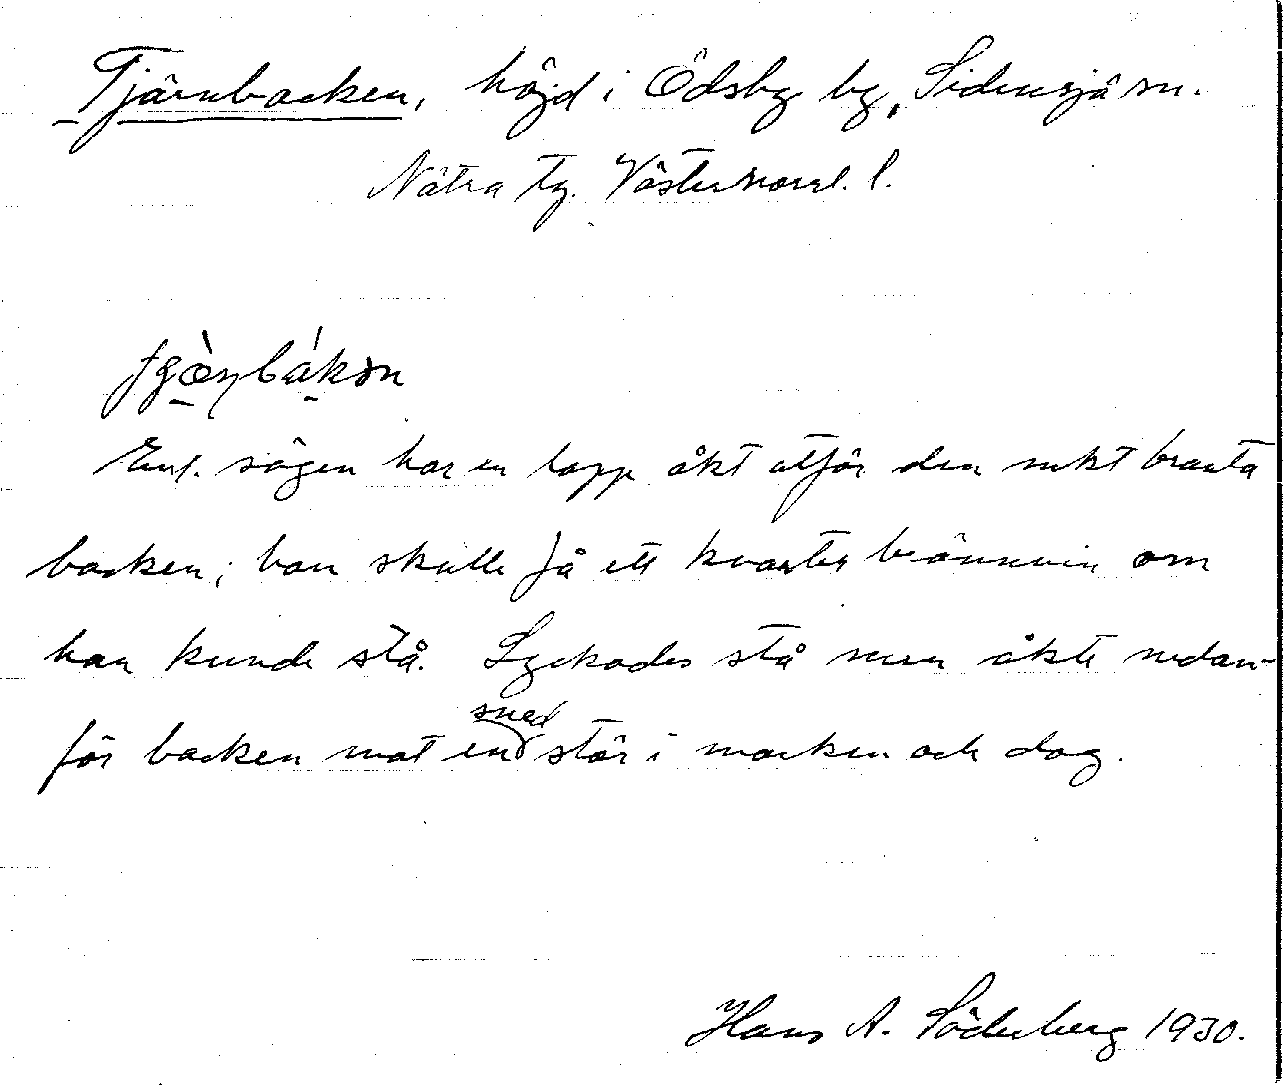 Tjärnbacken, höjd i Ödsby by, Sidensjö sn.
Nätra tg. Västernorrl. l.
Enl. sägen har en lapp åkt utför den mkt branta
backen; han skulle få ett kvarter brännvin om
han kunde stå. Lyckades stå men åkte nedan-
för backen mot en sned stör i marken och dog.
Hans A. Söderberg 1930.